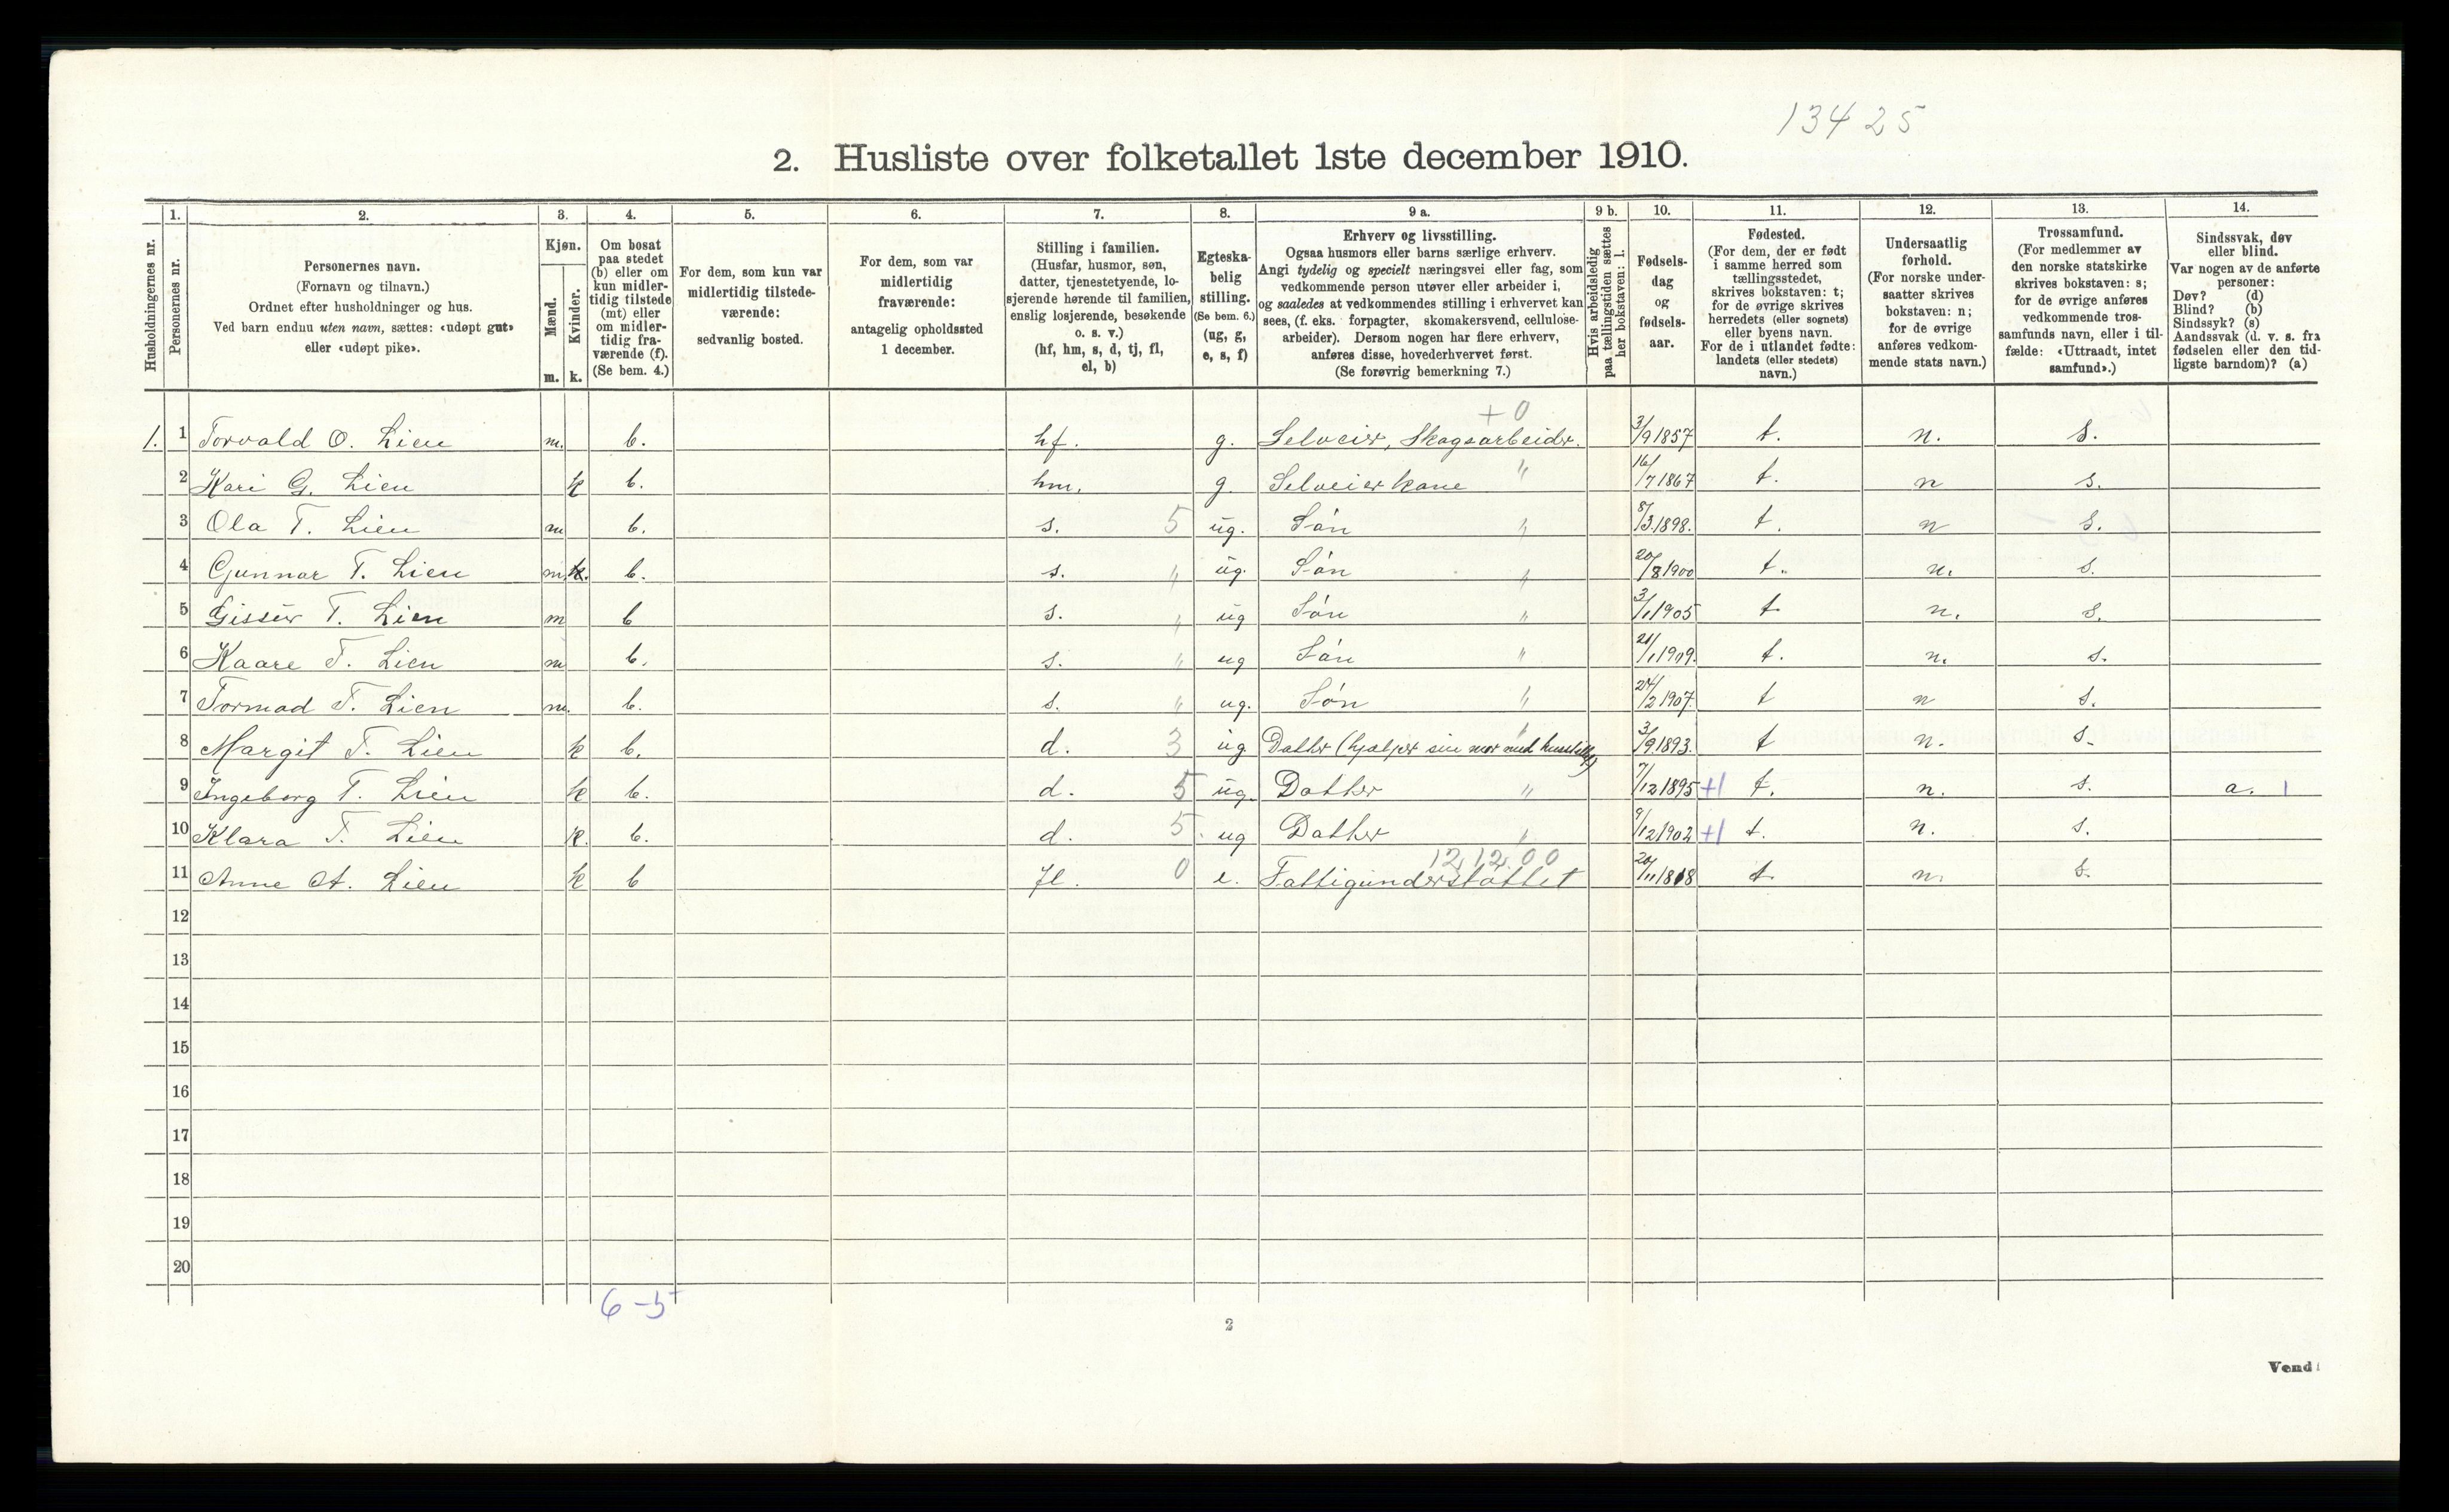 13425
2. Husliste over folketallet 1ste december 1910.
1. 2. 3. 4. 5. 6. 7. 8. 9 a. 9 b. 10. 11. 12. 13. 14.
Husholdningernes nr.
Personernes nr.
Personernes navn.
(Fornavn og tilnavn.)
Ordnet efter husholdninger og hus.
Ved barn endnu uten navn, sættes: «udøpt gut»
eller «udøpt pike».
Kjøn.
Mænd.
m.
Kvinder.
k.
Om bosat
paa stedet
(b) eller om
kun midler-
tidig tilstede
(mt) eller
om midler-
tidig fra-
værende (f).
(Se bem. 4.)
For dem, som kun var
midlertidig tilstede-
værende:
sedvanlig bosted.
For dem, som var
midlertidig
fraværende:
antagelig opholdssted
1 december.
Stilling i familien.
(Husfar, husmor, søn,
datter, tjenestetyende, lo-
sjerende hørende til familien,
enslig losjerende, besøkende
o. s. v.)
(hf, hm, s, d, tj, fl,
el, b)
Egteska-
belig
stilling.
(Se bem. 6.)
(ug, g,
e, s, f)
Erhverv og livsstilling.
Ogsaa husmors eller barns særlige erhverv.
Angi tydelig og specielt næringsvei eller fag, som
vedkommende person utøver eller arbeider i,
og saaledes at vedkommendes stilling i erhvervet kan
sees, (f. eks. forpagter, skomakersvend, cellulose-
arbeider). Dersom nogen har flere erhverv,
anføres disse, hovederhvervet først.
(Se forøvrig bemerkning 7.)
Hvis arbeidsledig
paa tællingstiden sættes
her bokstaven: l.
Fødsels-
dag
og
fødsels-
aar.
Fødested.
(For dem, der er født
i samme herred som
tællingsstedet,
skrives bokstaven: t;
for de øvrige skrives
herredets (eller sognets)
eller byens navn.
For de i utlandet fødte:
landets (eller stedets)
navn.)
Undersaatlig
forhold.
(For norske under-
saatter skrives
bokstaven: n;
for de øvrige
anføres vedkom-
mende stats navn.)
Trossamfund.
(For medlemmer av
den norske statskirke
skrives bokstaven: s;
for de øvrige anføres
vedkommende tros-
samfunds navn, eller i til-
fælde: «Uttraadt, intet
samfund».)
Sindssvak, døv
eller blind.
Var nogen av de anførte
personer:
Døv? (d)
Blind? (b)
Sindssyk? (s)
Aandssvak (d. v. s. fra
fødselen eller den tid-
ligste barndom)? (a)
+0
1. 1 Torvald O. Lien m. b. hf. g. Selveier, Skogsarbeider. 3/9 1857 t. n. s.
2 Kari G. Lien k b. hm. g. Selveier kone " 16/7 1867 t. n s.
3 Ola T. Lien m b. s. 5 ug. Søn " 8/3 1898. t. n s.
4 Gunnar T. Lien m. k. b. s. " ug. Søn " 20/8 1900 t. n. s.
5 Gissur T. Lien m b s. " ug Søn " 3/1 1905 t n. s.
6 Kaare T. Lien m b. s. " ug Søn " 21/1 1909. t. n. s.
7 Tormod T. Lien m. b. s. " ug. Søn " 24/2 1907. t n s.
8 Margit T. Lien k b. d. 3 ug Datter (hjælper sin mor med husstellet) " 3/9 1893. t n. s.
9 Ingeborg T. Lien k b. d. 5 ug. Datter " 7/12 1895 +1 t. n. s. a. 1
10 Klara T. Lien k. b. d. 5 ug Datter " 9/12 1902 +1 t. n. s.
12.12.00
11 Anne A. Lien k b fl. 0 e. Fattigunderstøttet 20/11 1818 t. n. s.
12
13
14
15
16
17
18
19
20
6 - 5
2
Vend!